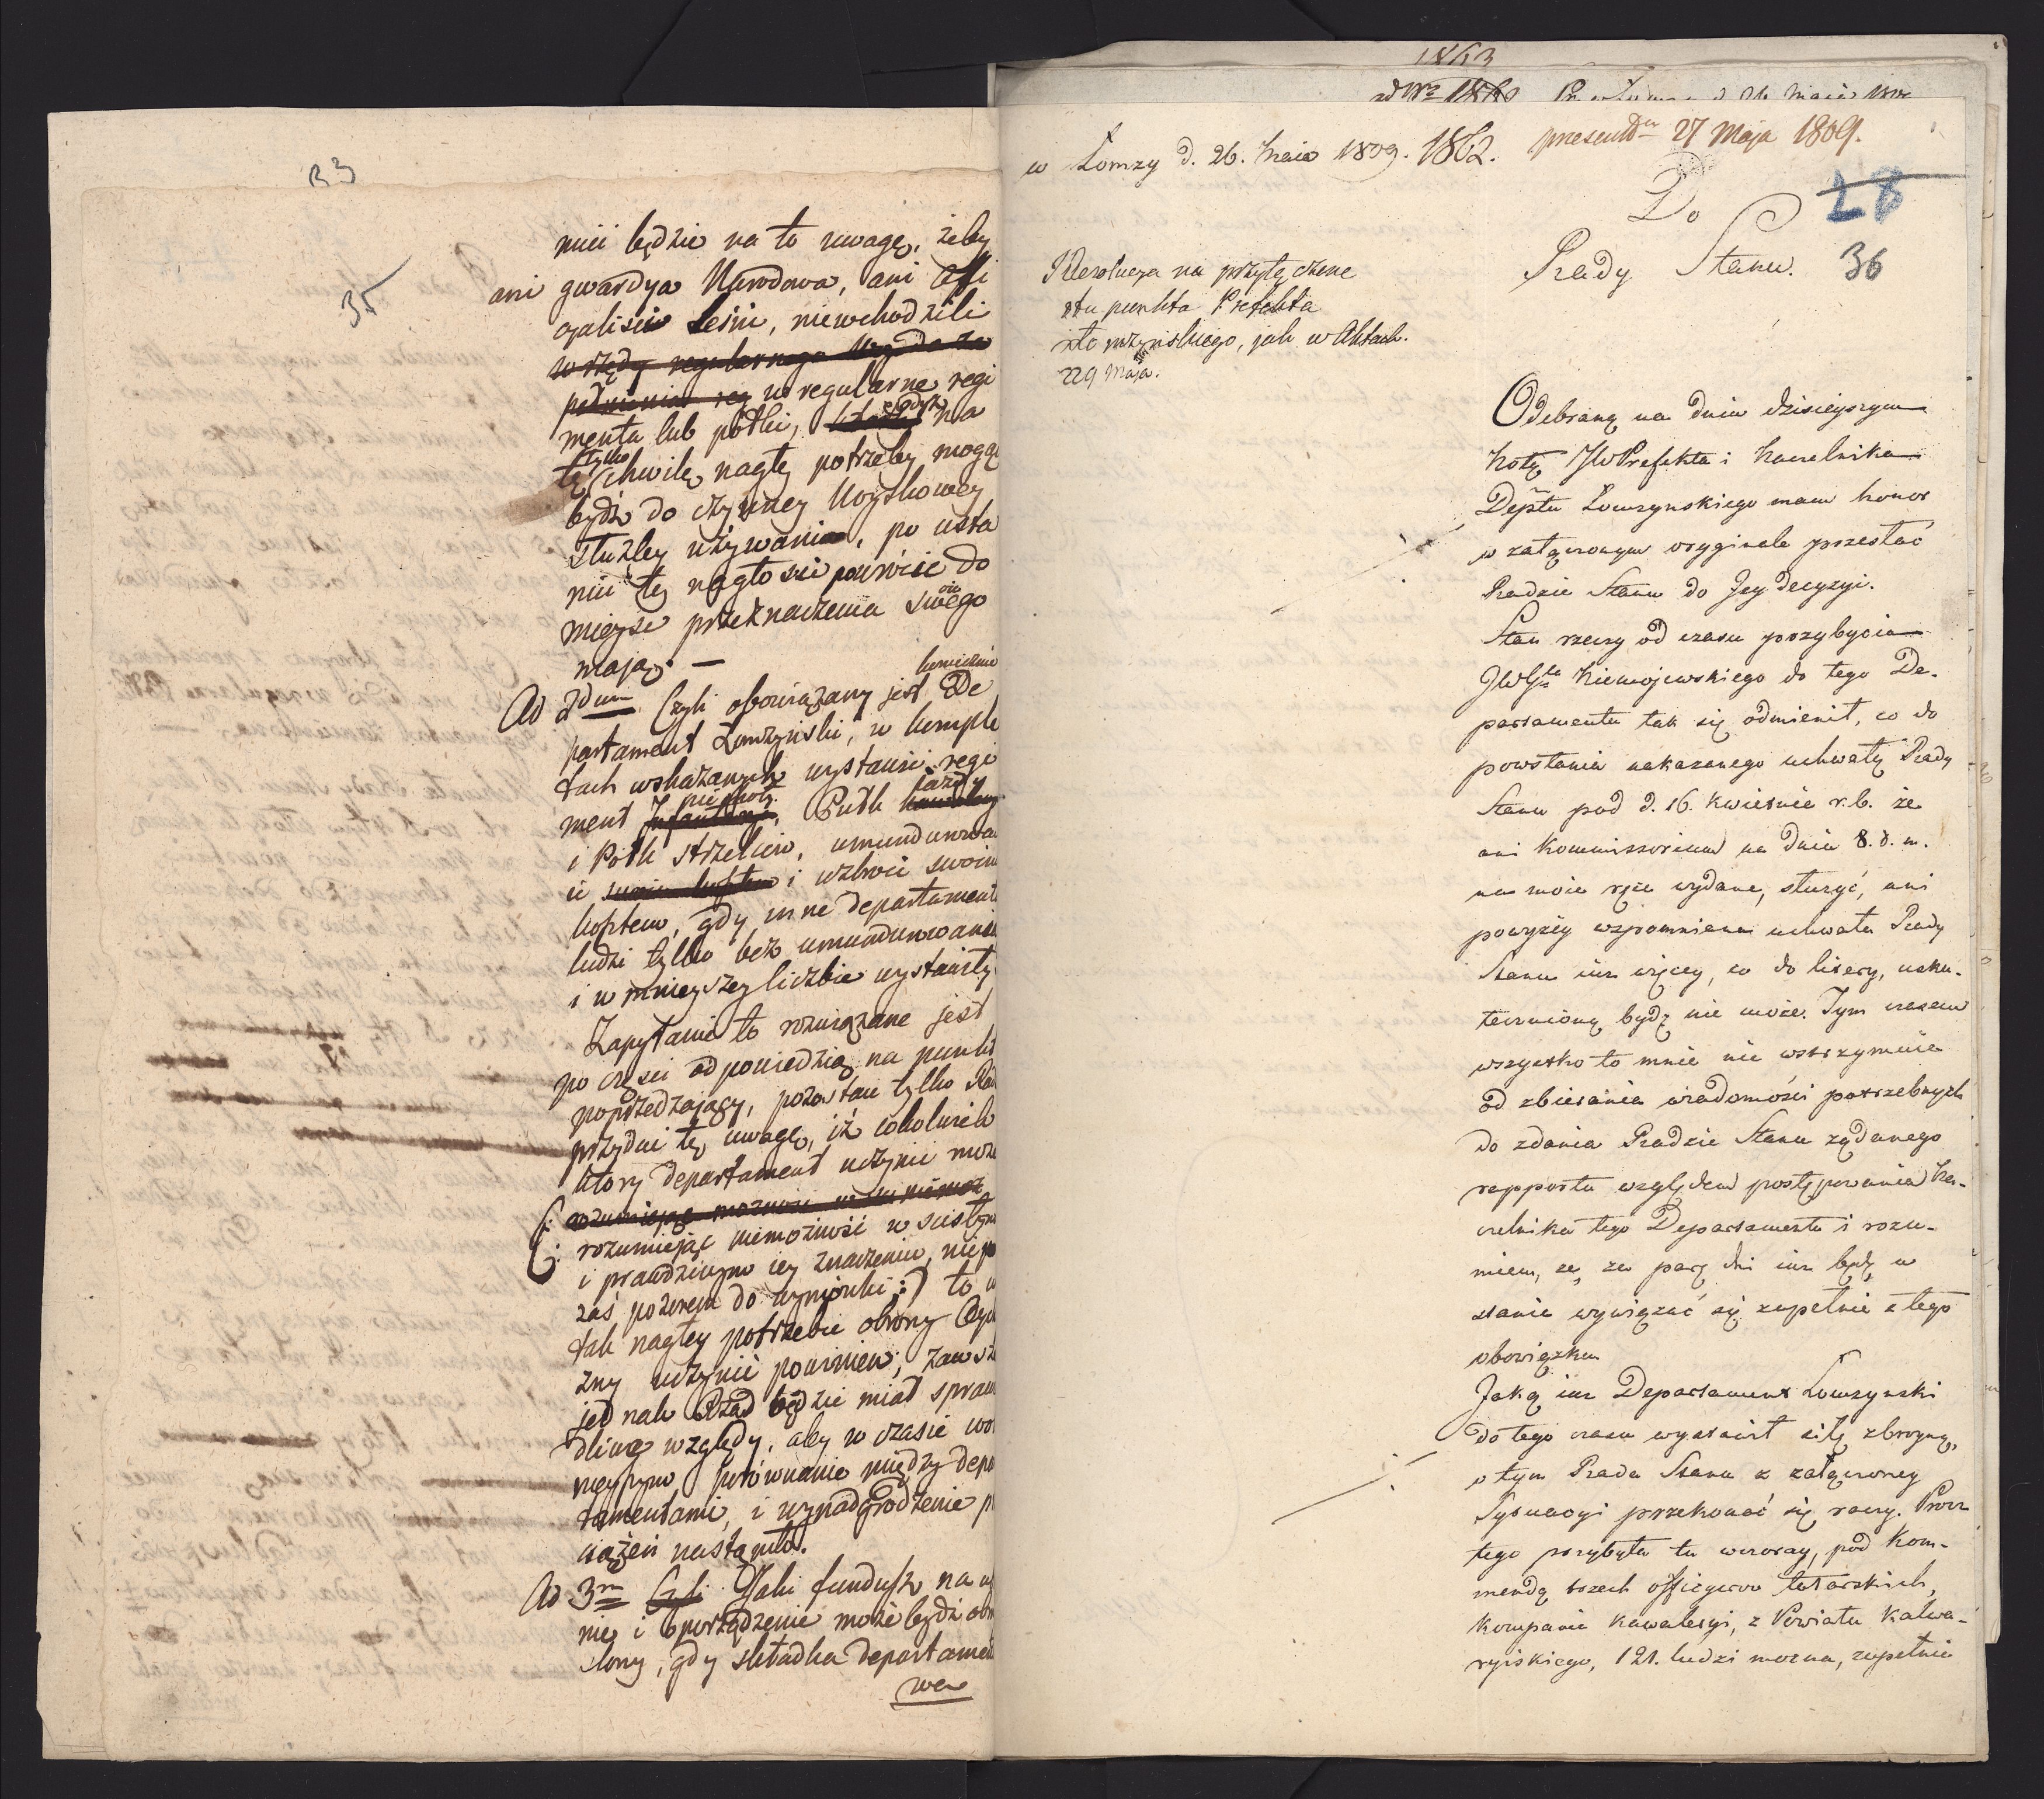 33
35
mieć będzie na to uwagę, żeby
ani gwardya Narodowa, ani offi
cyaliści leśni, niewchodzili
w rzędy regularnego
w regularne regi
menta lub półki, gdyż na
tę tylko chwilę nagłey potrzeby mogą
bydź do czynney Woyskowey
służby używani, po usta
niu tey nagłości powrócić do
mieysc przeznaczenia swego
mają. —
Ad 2dum Czyli obowiązany jest koniecznie De
partament Łomżyński, w komple
tach wskazanych wystawić regi
ment Infanteryi piechoty, Pułk jazdy
i Pułk strzelców, umundurowa
ć i uzbroić swoim
kosztem, gdy inne departamenta
ludzi tylko bez umundurowania
i w mnieyszey liczbie wystawiły
Zapytanie to rozwiązane jest
po części odpowiedzią na punkt
poprzedzający, pozostaie tylko Rad
przydać tę uwagę, iż cokolwiek
który departament uczynić może
(: rozumiejąc niemożność w ścisłym
i prawdziwym iey znaczeniu, nie po
zaś pozorem do wymówki :) to w
tak nagłey potrzebie obrony Oyczy
zny uczynić powinien; zawsze
jednak Rząd będzie miał sprawie
dliwe względy, aby w czasie wol
nieyszym porównanie między depar
tamentami, i wynadgrodzenie p
ciążeń nastąpiło.
Ad 3m Czyli Jaki fundusz na u
nie i oporządzenie może bydź
slony, gdy składka departamen
wa
1863
w Łomży d. 26. Maia 1809. 1862. presentn 27 Maja 1809.
28
Do
36
Rady Stanu.
Rezolucya na przyłączone
tu punkta Prefekta
Łomżyńskiego, jak w Aktach.
29 Maja.
Odebraną na dniu dzisieyszym
Notę JWPrefekta i Naczelnika
Deptu Łomzynskiego mam honor
w załączonym oryginale przesłać
Radzie Stanu do Jey decyzyi.
Stan rzeczy od czasu przybycia
JWGła Niemojewskiego do tego De-
partamentu tak się odmienił, co do
powstania nakazanego uchwałą Rady
Stanu pod d. 16. Kwietnia r. b. że
ani Kommissorium na dniu 8. d. m.
na moie ręce wydane, służyć, ani
powyżey wspomniana uchwała Rady
Stanu iuz więcey, co do litery, usku-
teczniona bydź nie może. Tym czasem
wszystko to mnie nie wstrzymuie
od zbierania wiadomości potrzebnych
do zdania Radzie Stanu żądanego
rapportu względem postępowania Na-
czelnika tego Departamentu i rozu-
miem, że, za parę dni iuz będę w
stanie wywiązać się zupełnie z tego
obowiązku.
Jaką iuz Departament Łomzynski
do tego czasu wystawił siłę zbroyną,
o tym Rada Stanu z załączoney
Sytuacyi przekonać się raczy. Procz
tego przybyła tu wczoray, pod Kom-
mendą trzech officyerow tatarskich,
kompania kawaleryi, z Powiatu Kalwa-
ryiskiego, 121. ludzi mocna, zupełnie